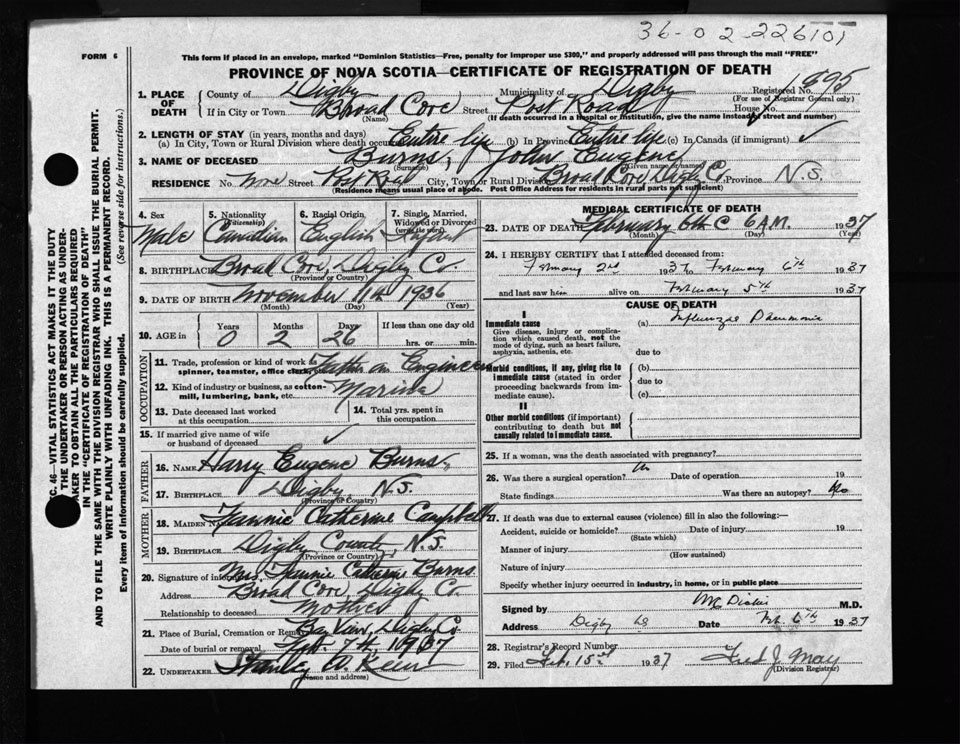 36-02-226101
FORM 6
This form if placed in an envelope, marked "Dominion Statistics—Free, penalty for improper use $300," and properly addressed will pass through the mail "FREE"
PROVINCE OF NOVA SCOTIA—CERTIFICATE OF REGISTRATION OF DEATH
SEC. 46—VITAL STATISTICS ACT MAKES IT THE DUTY
OF THE UNDERTAKER OR PERSON ACTING AS UNDER-
TAKER TO OBTAIN ALL THE PARTICULARS REQUIRED
IN THE "CERTIFICATE OF REGISTRATION OF DEATH"
AND TO FILE THE SAME WITH THE DIVISION REGISTRAR WHO SHALL ISSUE THE BURIAL PERMIT.
WRITE PLAINLY WITH UNFADING INK. THIS IS A PERMANENT RECORD.
Every item of information should be carefully supplied. (See reverse side for instructions.)
1. PLACE OF DEATH County of Digby Municipality of Digby Registered No. 1895
(For use of Registrar General only)
If in City or Town Broad Cove Street Post Road House No.
(Name) (If death occurred in a hospital or institution, give the name instead of street and number)
2. LENGTH OF STAY (in years, months and days)
(a) In City, Town or Rural Division where death occurred Entire life (b) In Province Entire life (c) In Canada (if immigrant) ✓
3. NAME OF DECEASED Burns, John Eugene
(Surname) (Given name or names)
RESIDENCE No. None Street Post Road City, Town or Rural Division Broad Cove Digby Co. Province N.S.
(Residence means usual place of abode. Post Office Address for residents in rural parts not sufficient)
4. Sex 5. Nationality (Citizenship) 6. Racial Origin 7. Single, Married, Widowed or Divorced (write the word)
Male Canadian English Infant
8. BIRTHPLACE Broad Cove, Digby Co.
(Province or Country)
9. DATE OF BIRTH November 11th 1936
(Month) (Day) (Year)
10. AGE in Years Months Days If less than one day old
0 2 26 hrs. or min.
OCCUPATION
11. Trade, profession or kind of work as spinner, teamster, office clerk, etc. Engineer
12. Kind of industry or business, as cotton-mill, lumbering, bank, etc. Marine
13. Date deceased last worked at this occupation
14. Total yrs. spent in this occupation
15. If married give name of wife or husband of deceased ✓
FATHER
16. NAME Harry Eugene Burns,
17. BIRTHPLACE Digby, N.S.
(Province or Country)
MOTHER
18. MAIDEN NAME Fannie Catherine Campbell
19. BIRTHPLACE Digby County, N.S.
(Province or Country)
20. Signature of informant Mrs. Fannie Catherine Burns.
Address Broad Cove, Digby Co.
Relationship to deceased Mother
21. Place of Burial, Cremation or Removal Bay View, Digby Co
Date of burial or removal Feb. 7th, 1937
22. UNDERTAKER Stanley W.
(Name and address)
MEDICAL CERTIFICATE OF DEATH
23. DATE OF DEATH February 6th 6 A.M. 1937
(Month) (Day) (Year)
24. I HEREBY CERTIFY that I attended deceased from:
February 2nd 1937 to February 6th 1937
and last saw him alive on February 5th 1937
CAUSE OF DEATH
I
Immediate cause (a) Influenzae Pneumonia
Give disease, injury or complication which caused death, not the mode of dying, such as heart failure, asphyxia, asthenia, etc.
due to
Morbid conditions, if any, giving rise to immediate cause (stated in order proceeding backwards from immediate cause).
(b)
due to
(c)
II
Other morbid conditions (if important) contributing to death but not causally related to immediate cause.
25. If a woman, was the death associated with pregnancy?
26. Was there a surgical operation? No Date of operation 19
State findings Was there an autopsy? No
27. If death was due to external causes (violence) fill in also the following:—
Accident, suicide or homicide? Date of injury 19
(State which)
Manner of injury
(How sustained)
Nature of injury
Specify whether injury occurred in industry, in home, or in public place
Signed by Dickie M.D.
Address Digby NS Date Feb. 6th 1937
28. Registrar's Record Number
29. Filed Feb. 15th 1937 Fred J. May
(Division Registrar)